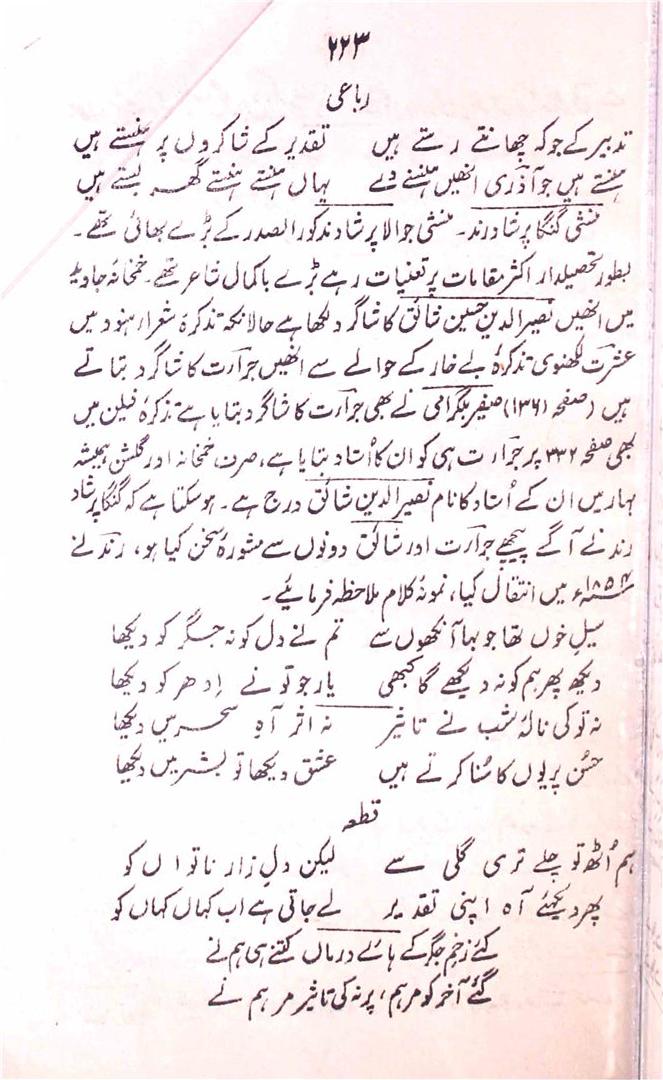 ۲۲۳
رباعی
تدبیر کے جو کہ چھانتے رستے ہیں تقدیر کے شاکروں پر ہنستے ہیں
ہنستے ہیں جو آذری انھیں ہنسنے دے یہاں ہنستے ہنستے گھر بستے ہیں
منشی گنگا پرشاد رند۔ منشی جوالا پرشاد مذکور الصدر کے بڑے بھائی تھے۔
بطور تحصیلدار اکثر مقامات پر تعنیات رہے بڑے باکمال شاعر تھے۔ خمخانہ جاوید
میں انھیں نصیر الدین حسین شائق کا شاگرد لکھا ہے حالانکہ تذکرہ شعرار ہنود میں
عشرت لکھنوی تذکرۂ بے خار کے حوالے سے انھیں جرارت کا شاگرد بتاتے
ہیں (صفحہ ۱۳۶) صفیر بلگرامی نے بھی جرارت کا شاگرد بتایا ہے تذکرۂ فیلن میں
بھی صفحہ ۳۳۲ پر جرارت ہی کو ان کا اُستاد بتایا ہے، صرف خمخانہ اور گلشن ہمیشہ
بہار میں ان کے اُستاد کا نام نصیر الدین شائق درج ہے۔ ہوسکتا ہے کہ گنگا پرشاد
رند نے آگے پیچھے جرارت اور شائق دونوں سے مشورۂ سخن کیا ہو، رند نے
۱۸۵۴ء میں انتقال کیا، نمونۂ کلام ملاحظہ فرمائیے۔
سیلِ خوں تھا جو بہا آنکھوں سے تم نے دل کو نہ جگر کو دیکھا
دیکھ پھر ہم کو نہ دیکھے گا کبھی یار جو تو نے اِدھر کو دیکھا
نہ تو کی نالۂ شب نے تاثیر نہ اثر آہِ سحر میں دیکھا
حُسن پریوں کا سُنا کرتے ہیں عشق دیکھا تو بشر میں دیکھا
قطعہ
ہم اُٹھ تو چلے تری گلی سے لیکن دلِ زار ناتواں کو
پھر دیکھئے آہ اپنی تقدیر لے جاتی ہے اب کہاں کہاں کو
کئے زخمِ جگر کے ہائے درماں کتنے ہی ہم نے
گئے آخر کو مر ہم، پر نہ کی تاثیر مرہم نے